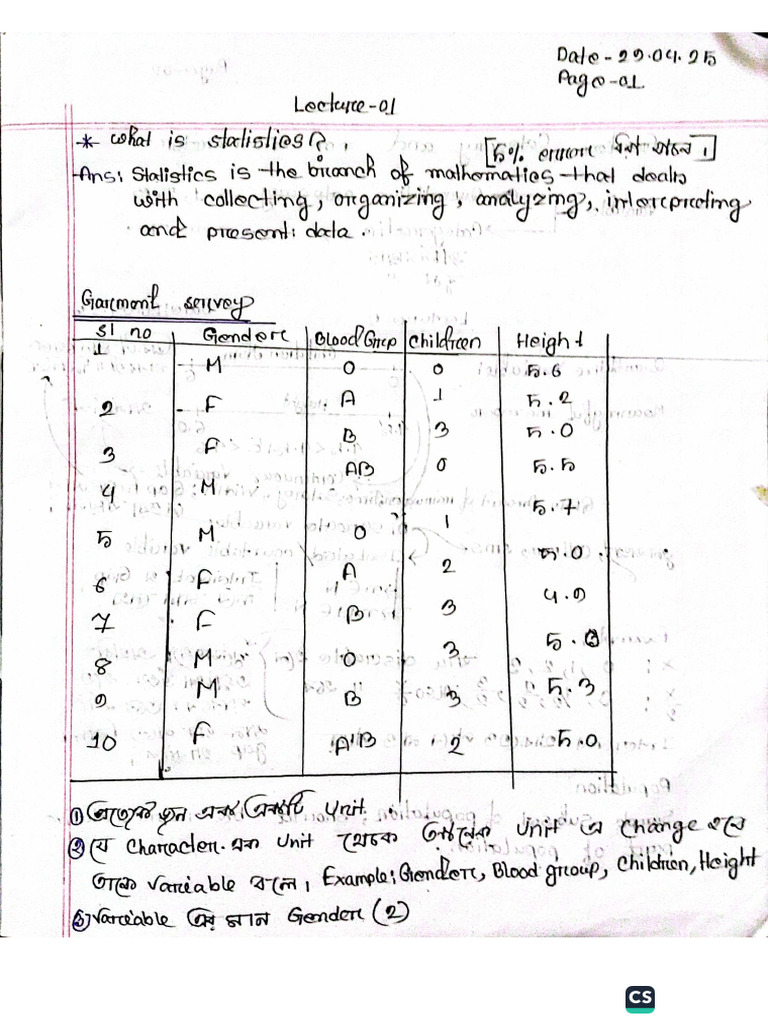 Date - 29.04.25
Page-01
Lecture-01
* What is statistics?
[5% লেখলে
Ans: Statistics is the branch of mathematics that deals
with collecting, organizing, analyzing, interpreting
and present: data.
Garment survey
Sl no Gender Blood Grup Children Height
1 M O 0 5.6
2 F A 1 5.2
3 F B 3 5.0
4 M AB 0 5.5
5 M O 1 5.7
6 F A 2 5.0
7 F B 3 4.9
8 M O 3
9 M B 3 5.3
10 F AB 2 5.0
① প্রত্যেক একটি Unit.
② যে Character এক Unit থেকে Unit এ change হবে
তাকে Variable বলে। Example: Gender, Blood group, Children, Height
③ Variable এর মান Gender (2)
CS